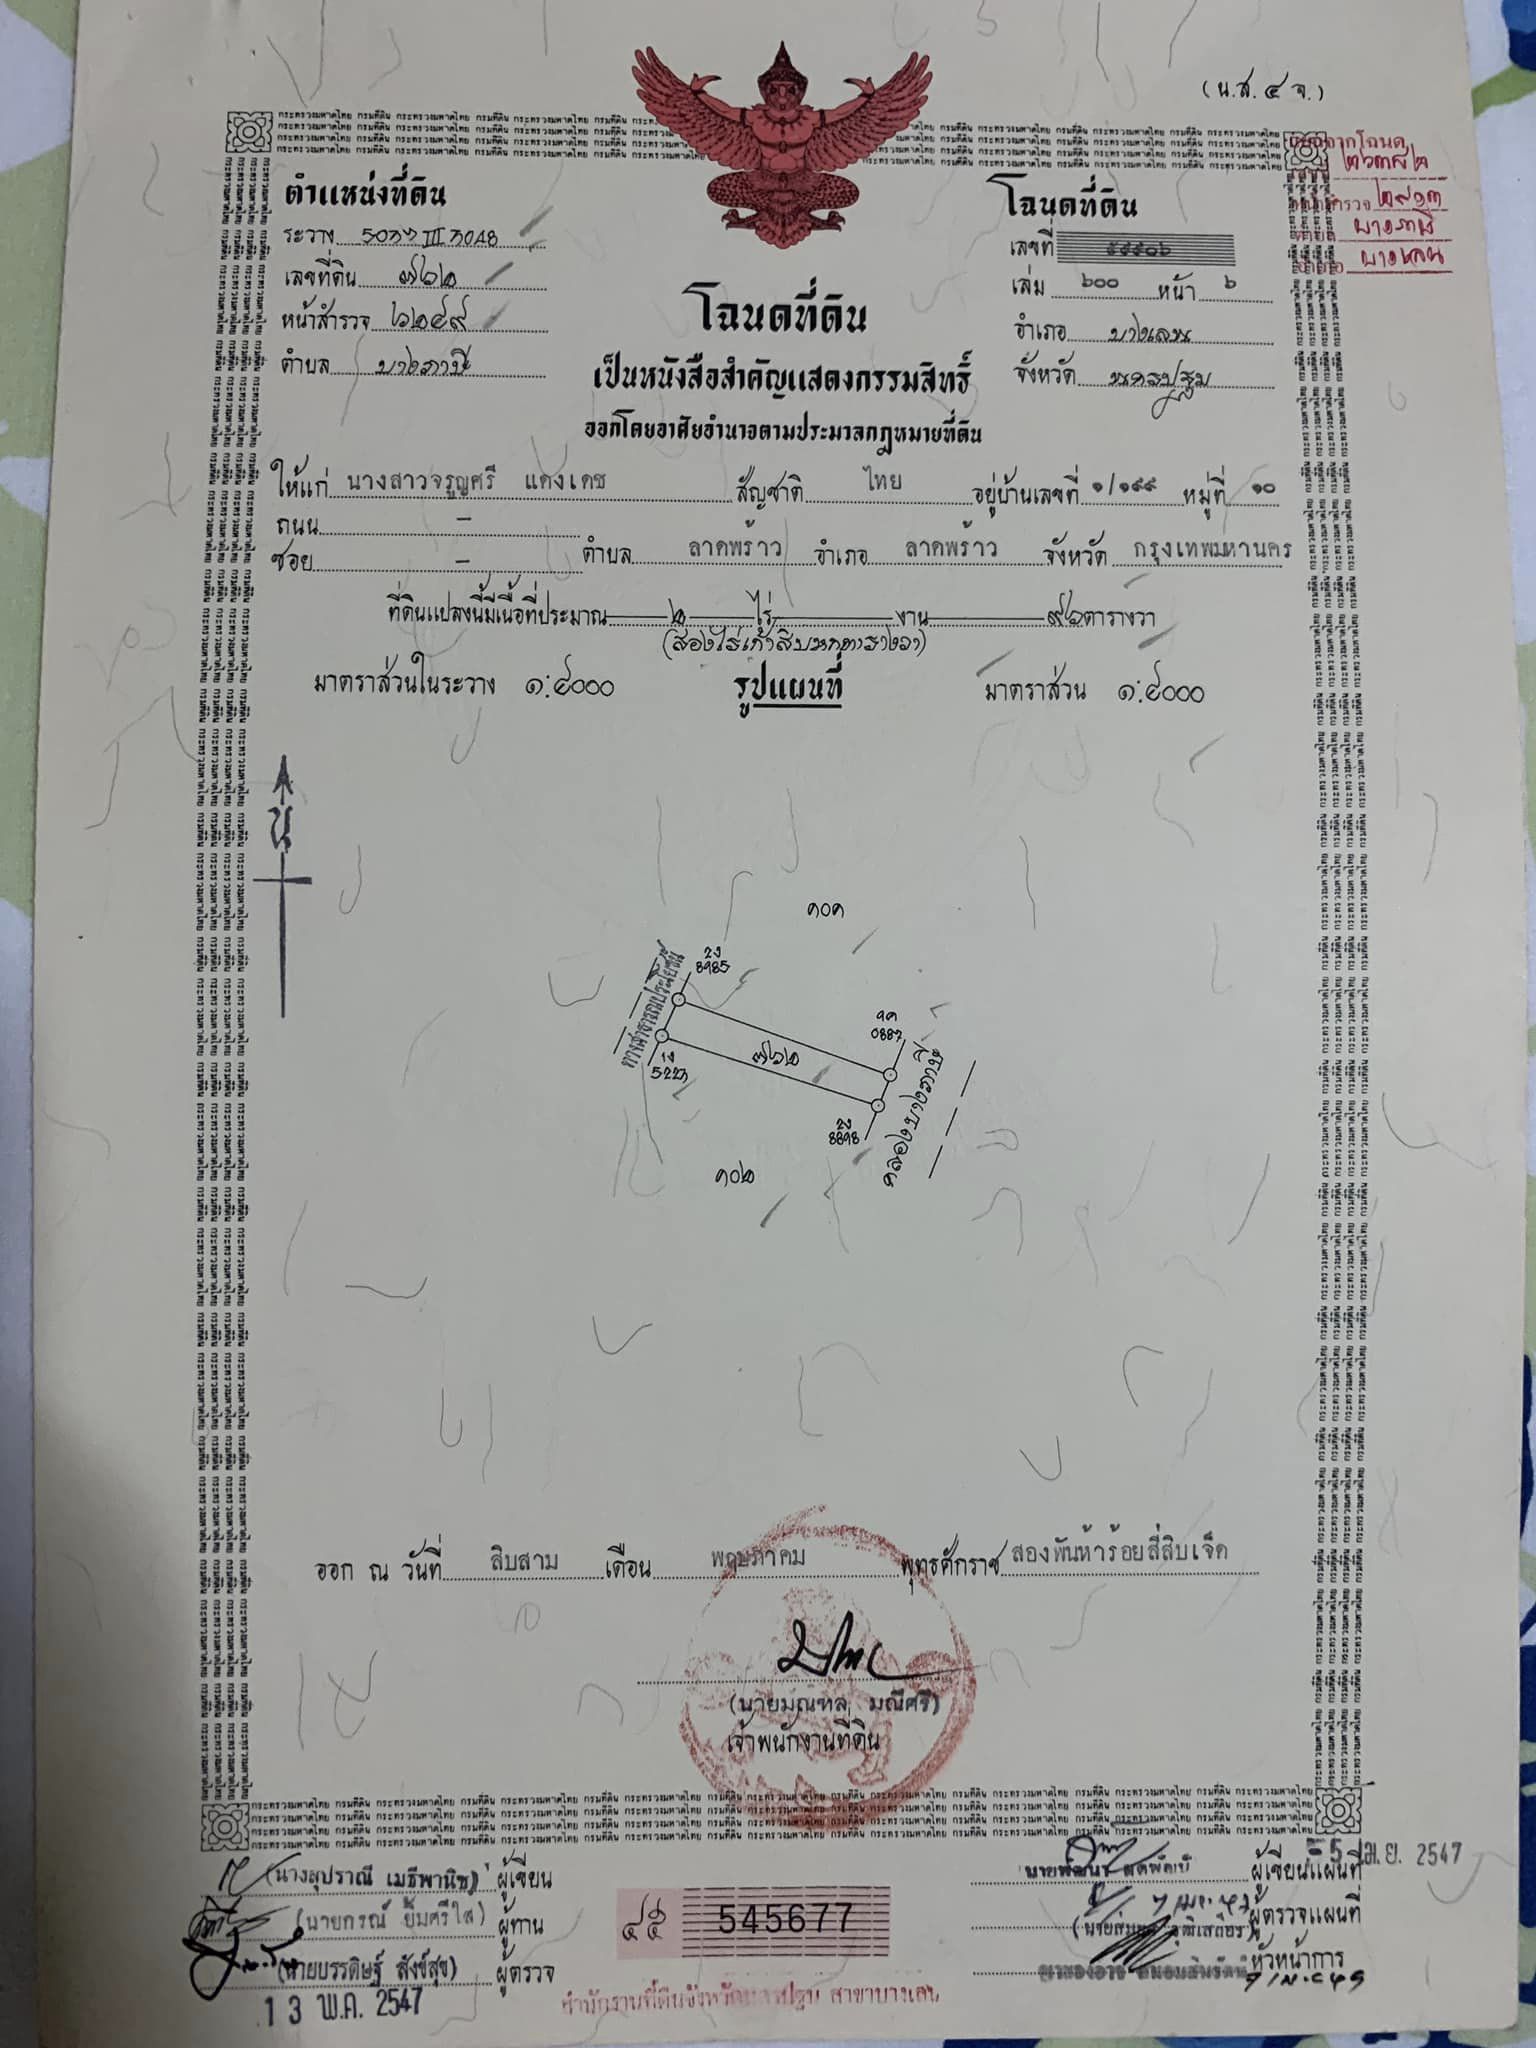 (น.ส.๔ จ.)
ตำแหน่งที่ดิน
ระวาง
เลขที่ดิน ๗๖๒
หน้าสำรวจ ๖๒๔๙
ตำบล บางภาษี
โฉนดที่ดิน
เลขที่
เล่ม ๖๐๐ หน้า ๖
อำเภอ บางเลน
จังหวัด นครปฐม
โฉนด
สำรวจ
บางภาษี
บางเลน
โฉนดที่ดิน
เป็นหนังสือสำคัญแสดงกรรมสิทธิ์
ออกโดยอาศัยอำนาจตามประมวลกฎหมายที่ดิน
ให้แก่ นางสาวจรูญศรี แดงเดช สัญชาติ ไทย อยู่บ้านเลขที่ ๑/๑๙๙ หมู่ที่ ๑๐
ถนน -
ซอย - ตำบล ลาดพร้าว อำเภอ ลาดพร้าว จังหวัด กรุงเทพมหานคร
ที่ดินแปลงนี้มีเนื้อที่ประมาณ ๒ ไร่ งาน ๙๖ ตารางวา
(สองไร่เก้าสิบหกตารางวา)
มาตราส่วนในระวาง ๑:๔๐๐๐ รูปแผนที่ มาตราส่วน ๑:๔๐๐๐
น
๑๐๓
ทางสาธารณประโยชน์
8985
0887
๗๖๒
คลองบางภาษี
8898
๑๐๒
ออก ณ วันที่ สิบสาม เดือน พฤษภาคม พุทธศักราช สองพันห้าร้อยสี่สิบเจ็ด
(นายมณฑล มณีศรี)
เจ้าพนักงานที่ดิน
เมธีพานิช) ผู้เขียน
(นายกรณ์ ยิ้มศรีใส) ผู้ทาน
(นายบรรดิษฐ์ สังข์สุข) ผู้ตรวจ
13 พ.ค. 2547
545677
สำนักงานที่ดินจังหวัดนครปฐม สาขาบางเลน
ผู้เขียนแผนที่
5 เม.ย. 2547
ผู้ตรวจแผนที่
หัวหน้าการ